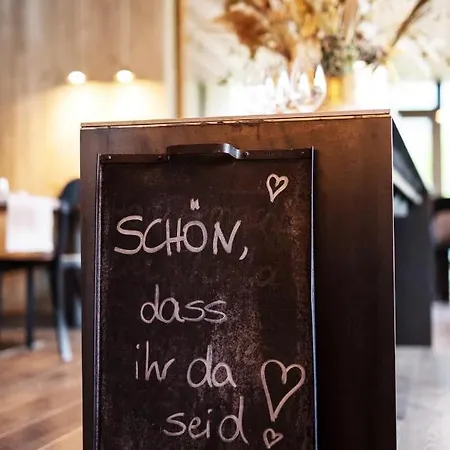 SCHÖN,
dass
ihr da
seid